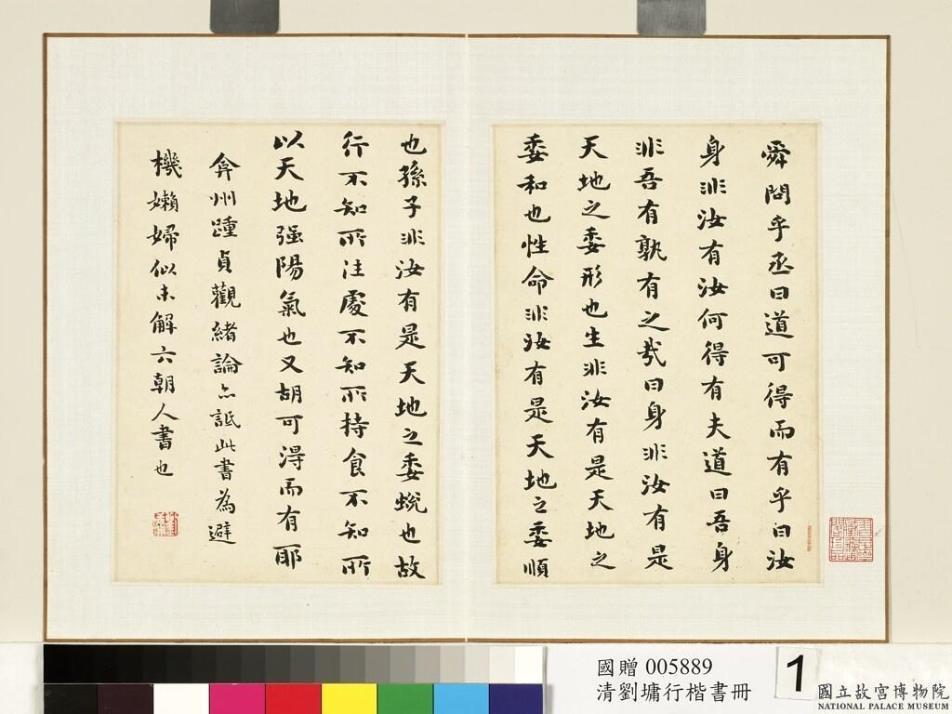 舜問乎丞曰道可得而有乎曰汝
身非汝有汝何得有夫道曰吾身
非吾有孰有之哉曰身非汝有是
天地之委形也生非汝有是天地之
委和也性命非汝有是天地之委順
也孫子非汝有是天地之委蛻也故
行不知所往處不知所持食不知所
以天地强陽氣也又胡可得而有耶
弇州踵貞觀緒論亦詆此書為避
機嬾婦似未解六朝人書也
國贈 005889
清劉墉行楷書冊
1
國立故宮博物院
NATIONAL PALACE MUSEUM